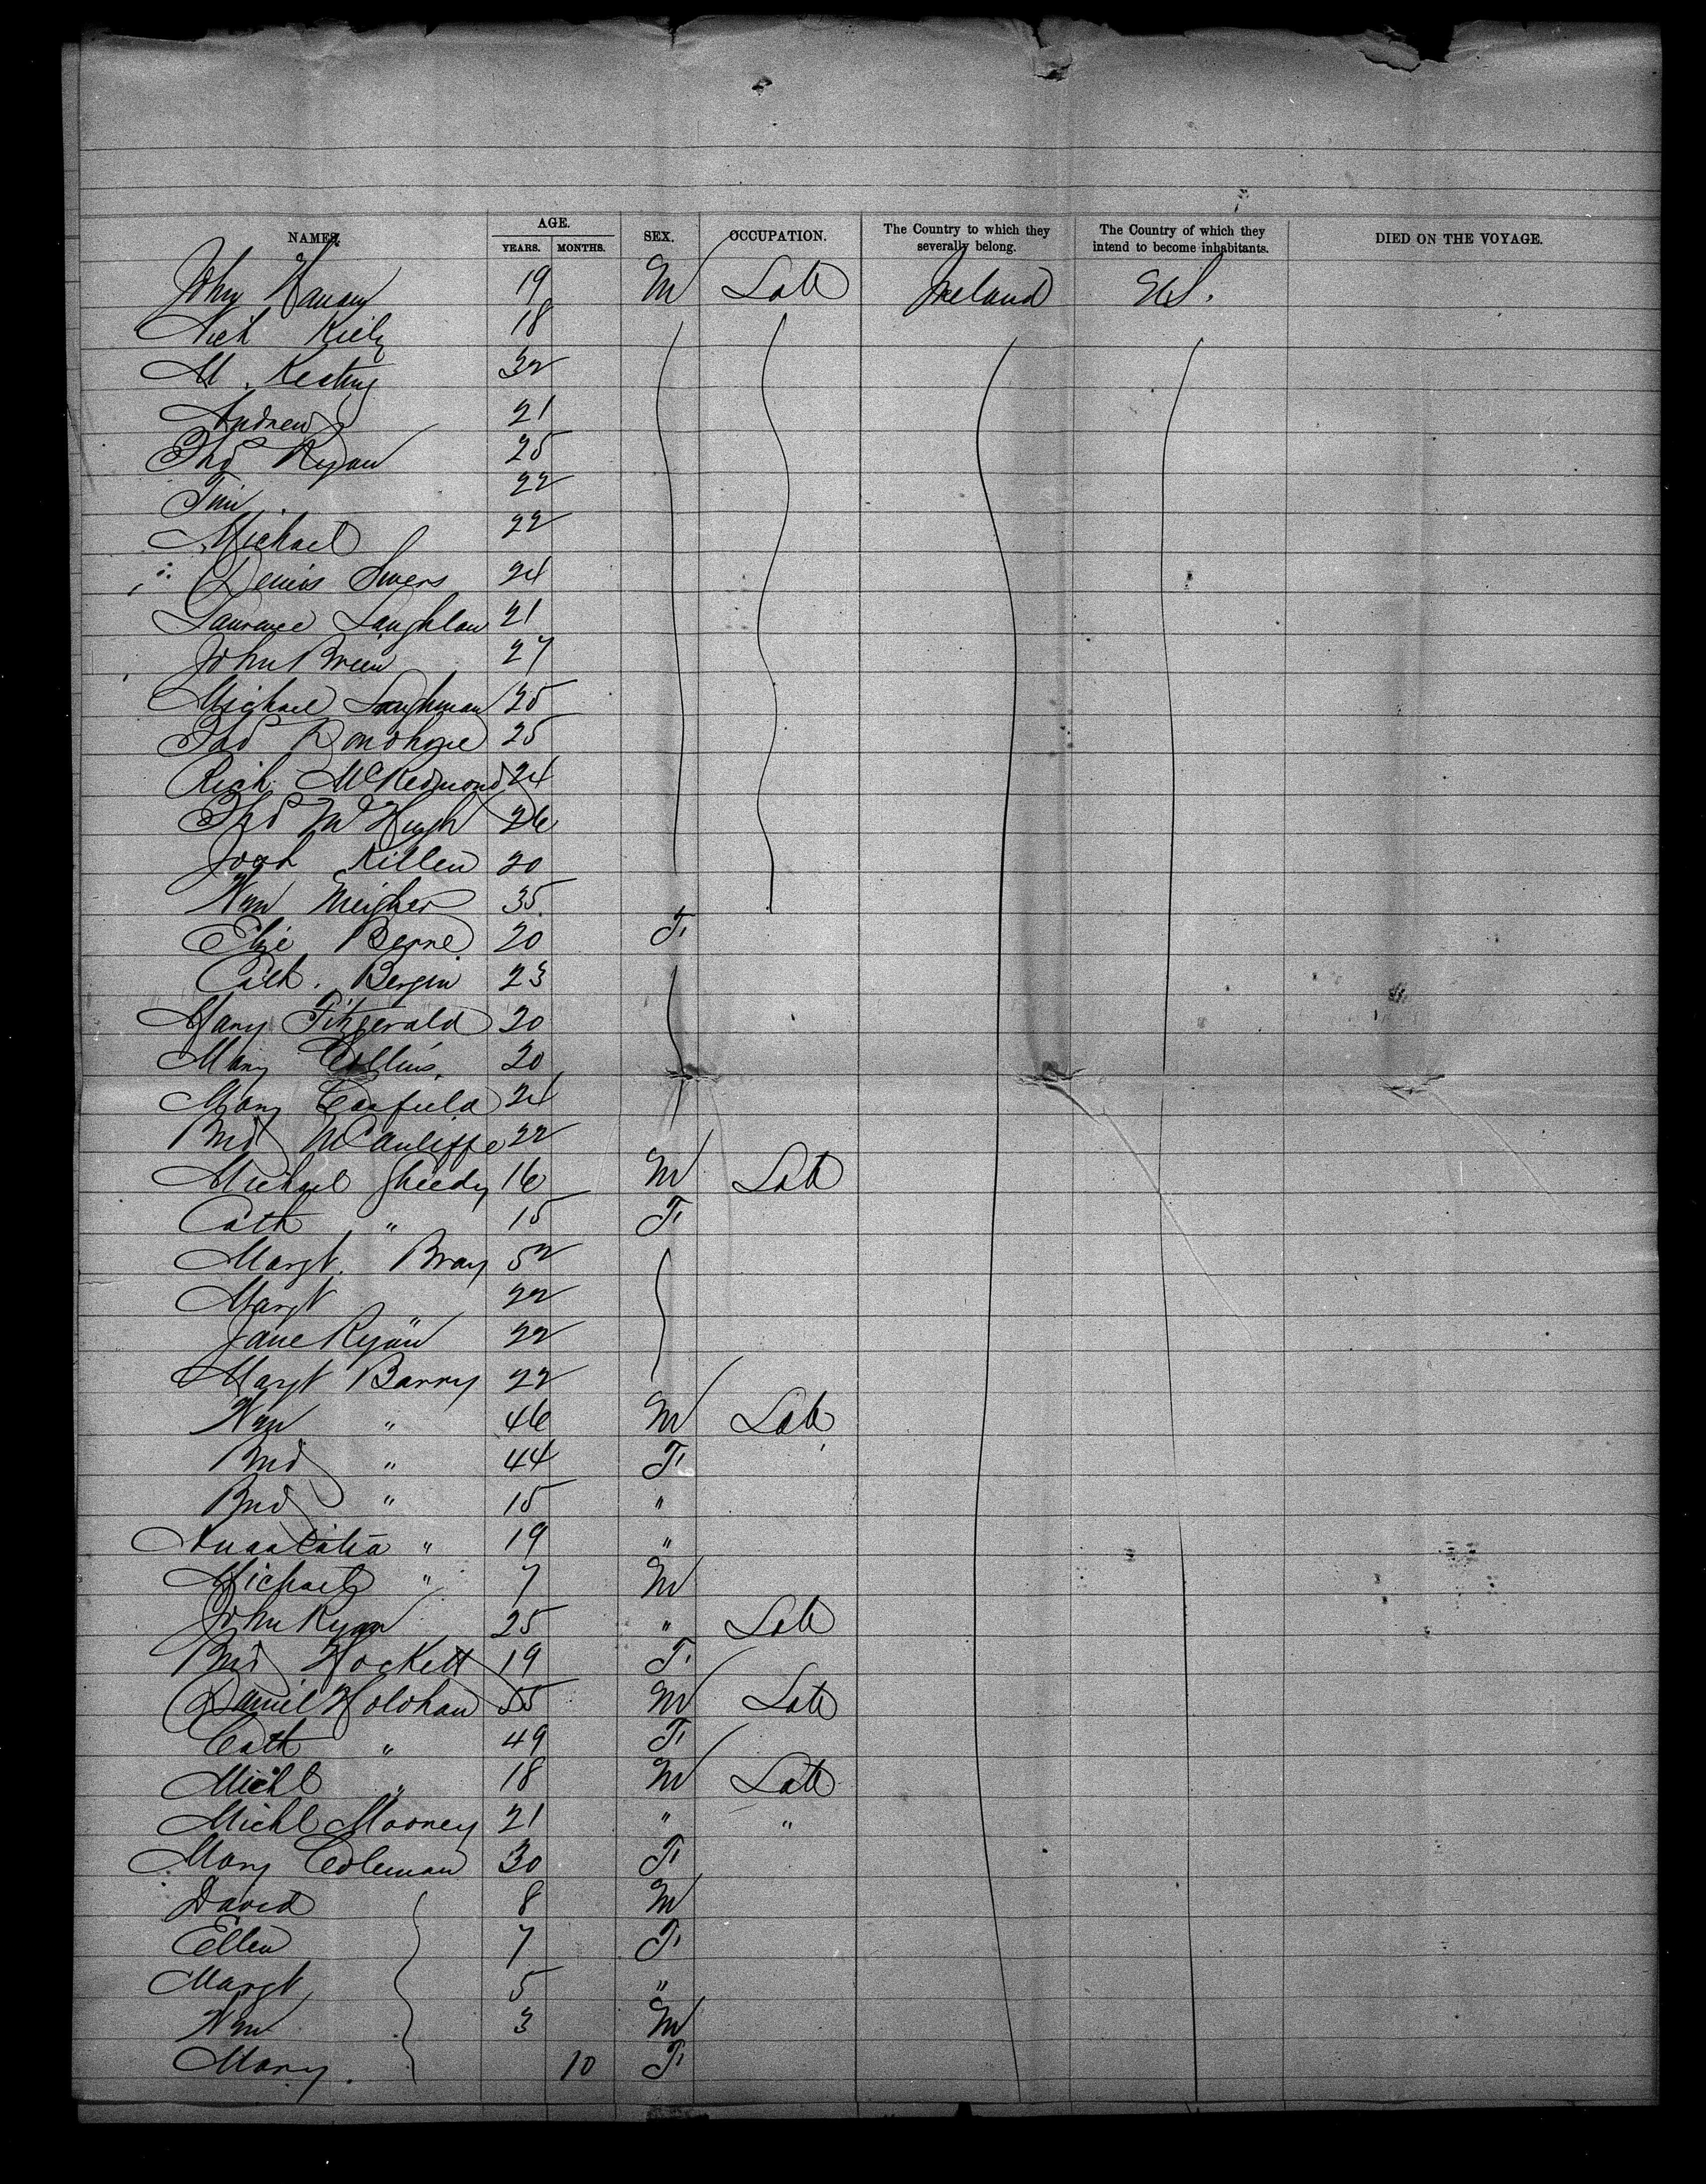 NAMES. AGE. YEARS. MONTHS. SEX. OCCUPATION. The Country to which they severally belong. The Country of which they intend to become inhabitants. DIED ON THE VOYAGE.
John 19 M Lab Ireland U.S.
Mich Kiely 18
M. Keating 32
Andrew 21
Thos Ryan 25
Tim 22
Michael 22
Denis 24
Laurence Laughlan 21
John Breen 27
Michael Loughman 25
Thos Donohoe 25
Rich McRedmond 24
Thos McHugh 26
Josh Killen 20
Wm Meigher 35
Eliz 20 F
Cath. Bergin 23
Mary Fitzgerald 20
Mary Collins 20
Mary 24
Brid McAuliffe 22
Michael Sheedy 16 M Lab
Cath " 15 F
Margt. Bray 52
Margt " 22
Jane Ryan 22
Margt Barry 22
Wm " 46 M Lab
Brid " 44 F
Brid " 15 "
Anastatia " 19 "
Michael " 7 M
John Ryan 25 " Lab
Brid Hockett 19 F
Daniel Holohan 55 M Lab
Cath " 49 F
Michl " 18 M Lab
Michl Mooney 21 " "
Mary Coleman 30 F
David 8 M
Ellen 7 F
Margt 5 "
Wm 3 M
Mary. 10 F